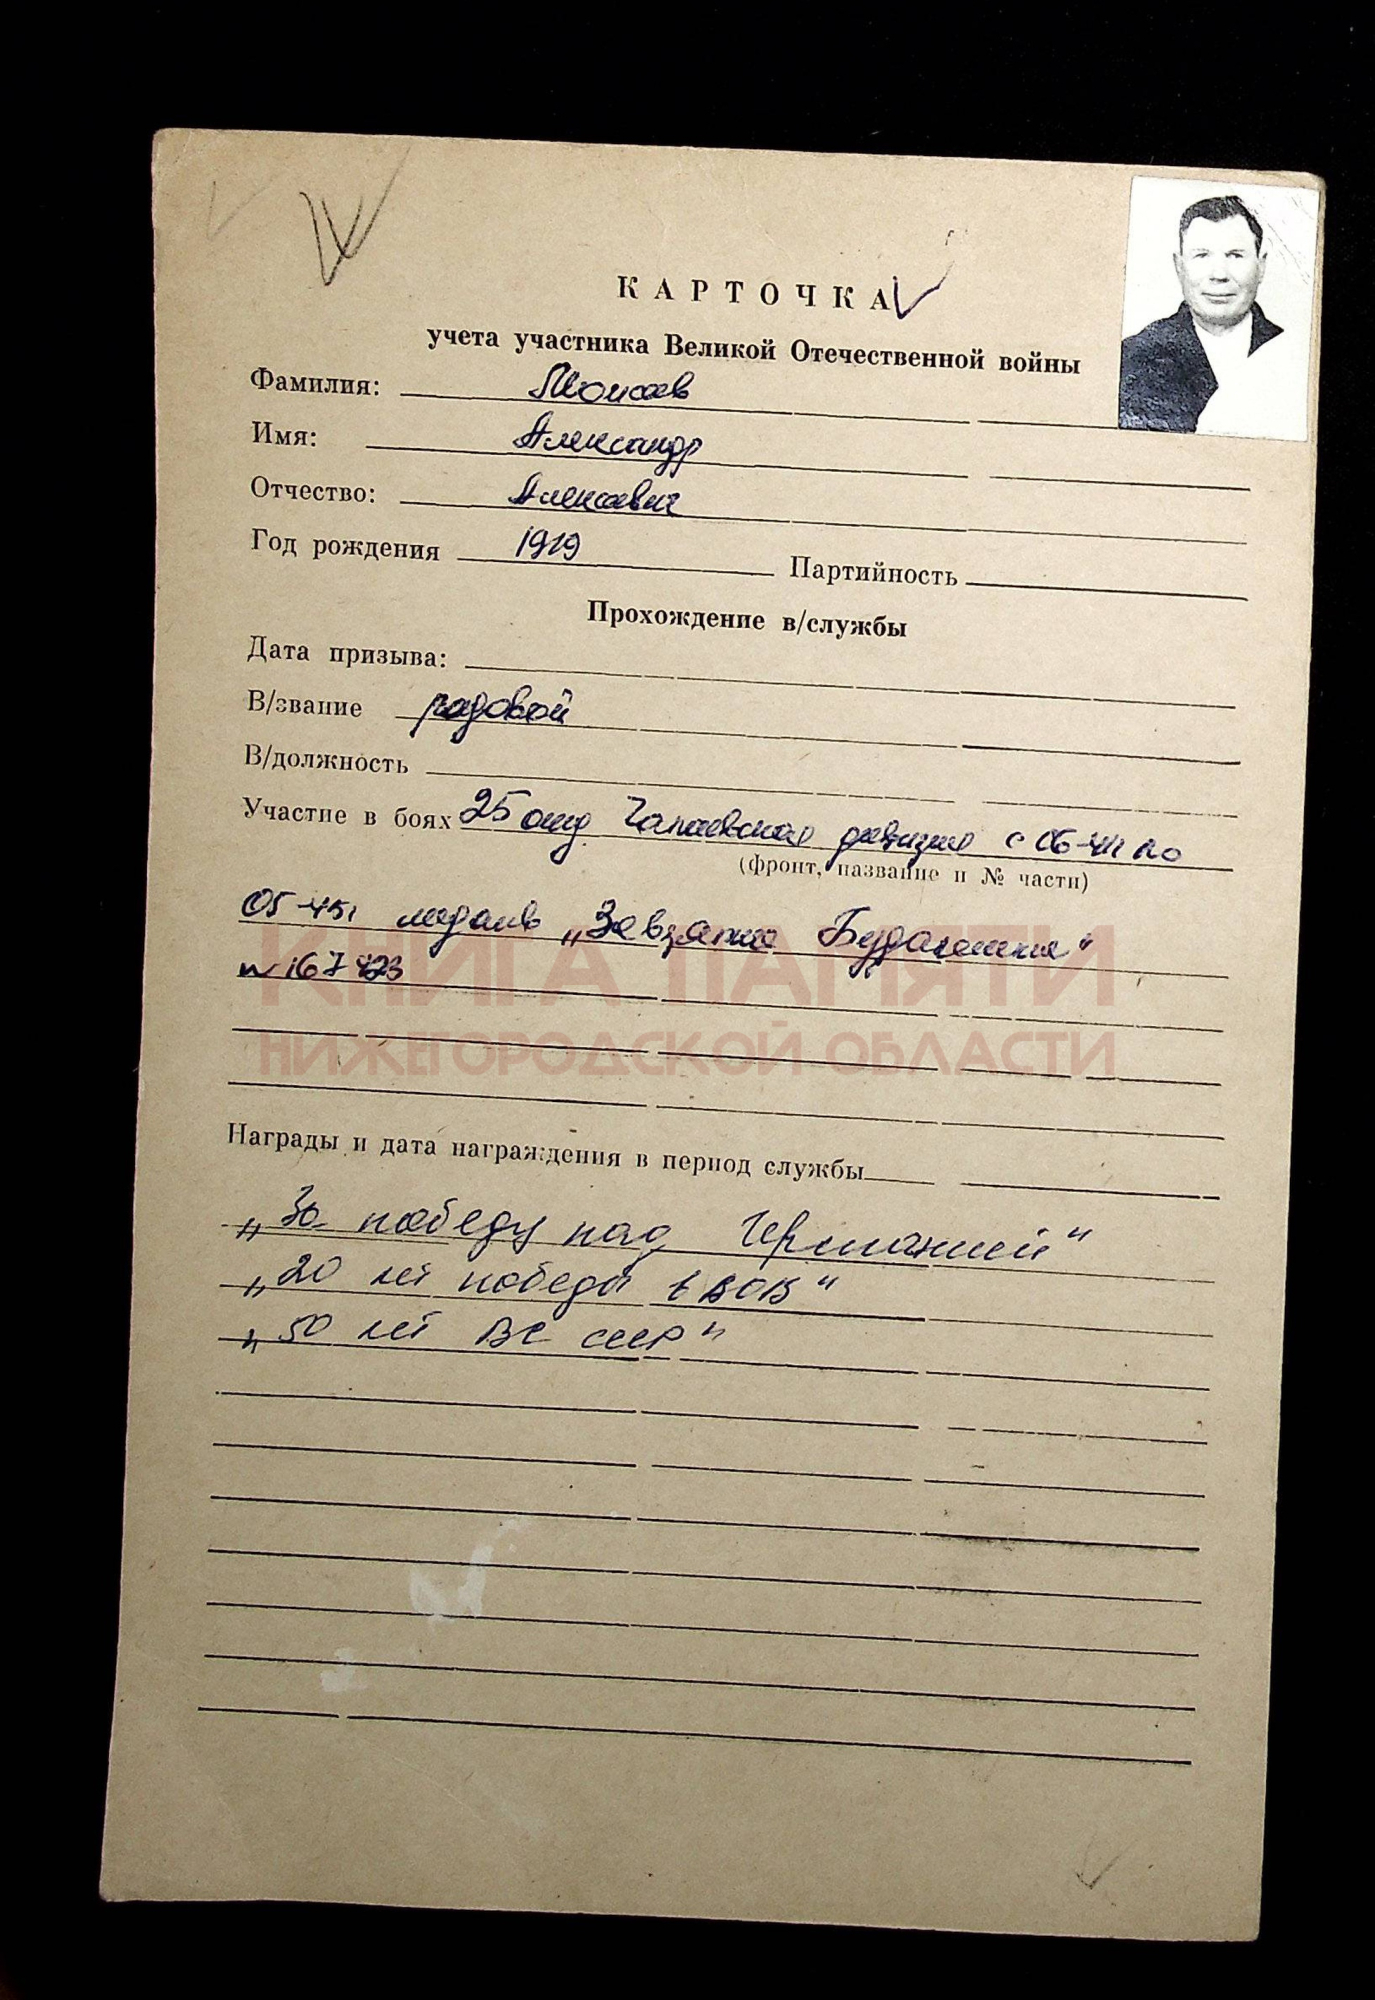 КАРТОЧКА
учета участника Великой Отечественной войны
Фамилия: Моисеев
Имя: Александр
Отчество: Алексеевич
Год рождения 1919 Партийность
Прохождение в/службы
Дата призыва:
В/звание рядовой
В/должность
Участие в боях 25 Чапаевская дивизия с 06-41 по
(фронт, название и № части)
05-45г медаль „За взятие Будапешта"
КНИГА ПАМЯТИ
НИЖЕГОРОДСКОЙ ОБЛАСТИ
Награды и дата награждения в период службы
„За победу над Германией"
„20 лет победы в ВОВ"
„50 лет ВС СССР"